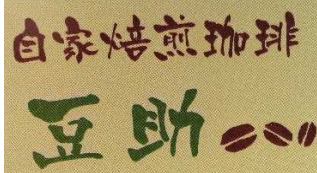 自家焙煎珈琲
豆助